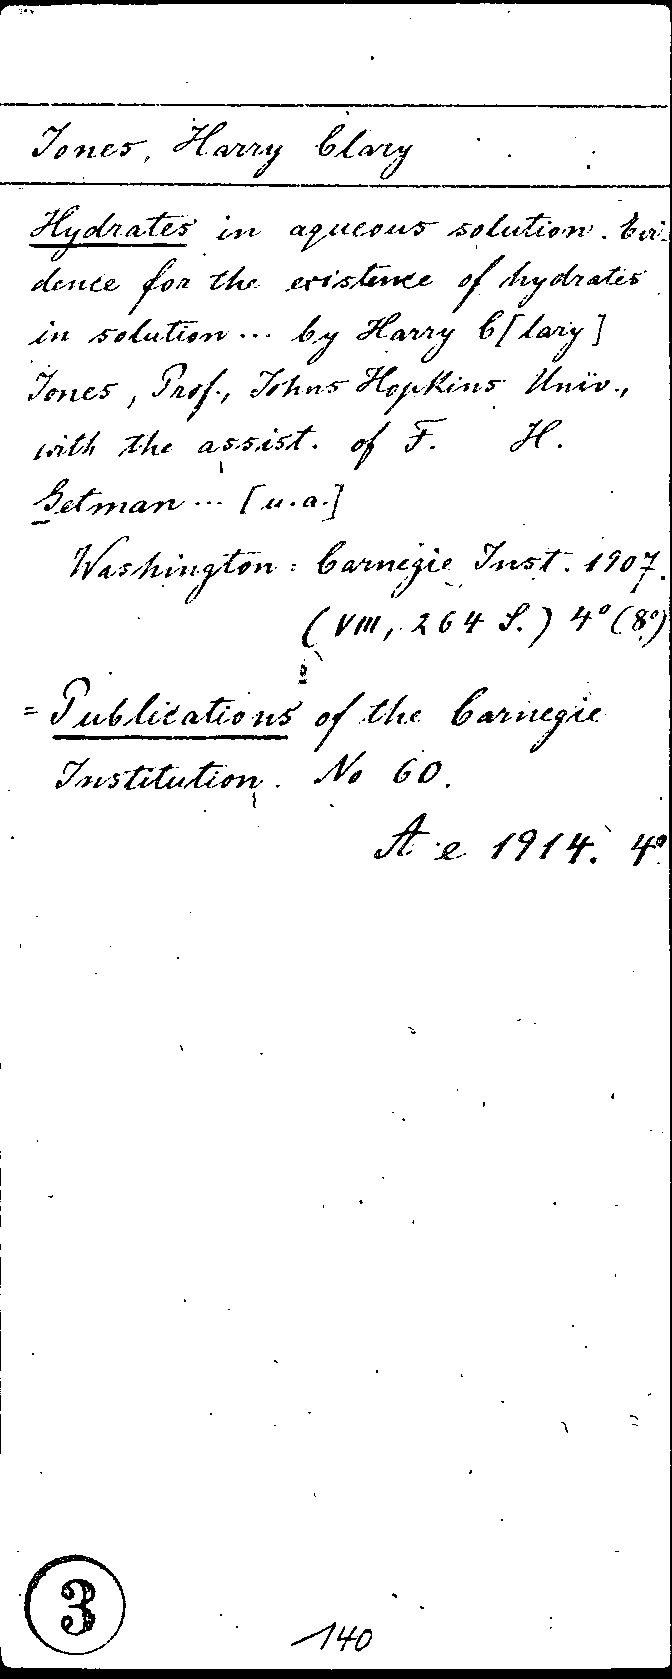 Jones, Harry Clary
Hydrates in aqueous solution. Evi-
dence for the existence of hydrates
in solution ... by Harry C[lary]
Jones, Prof., Johns Hopkins Univ.,
with the assist. of F. H.
Getman ... [u.a.]
Washington: Carnegie Inst. 1907.
(VIII, 264 S.) 4° (8°)
= Publications of the Carnegie
Institution. No 60.
A e 1914. 4°
3
140